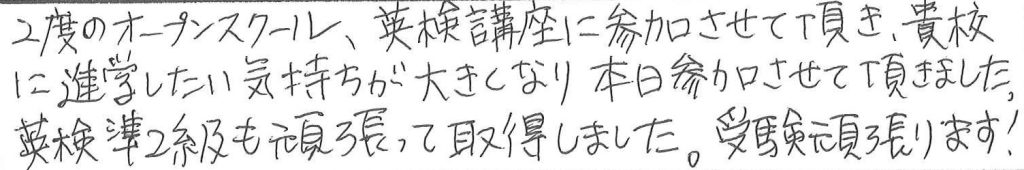 2度のオープンスクール、英検講座に参加させて頂き、貴校
に進学したい気持ちが大きくなり本日参加させて頂きました。
英検準2級も頑張って取得しました。受験頑張ります!